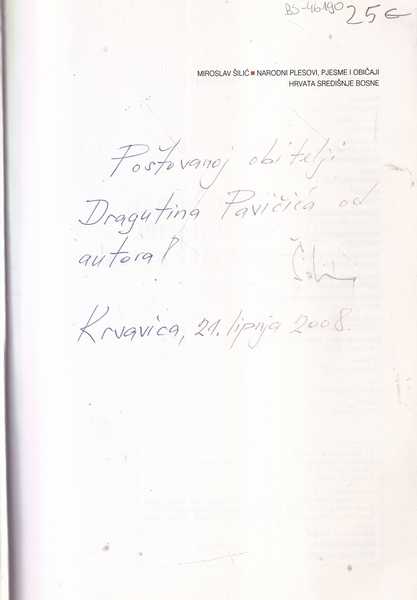 BS-46190
25€
MIROSLAV ŠILIĆ ■ NARODNI PLESOVI, PJESME I OBIČAJI
HRVATA SREDIŠNJE BOSNE
Poštovanoj obitelji
Dragutina Pavičića od
autora!
Krvavica, 21. lipnja 2008.